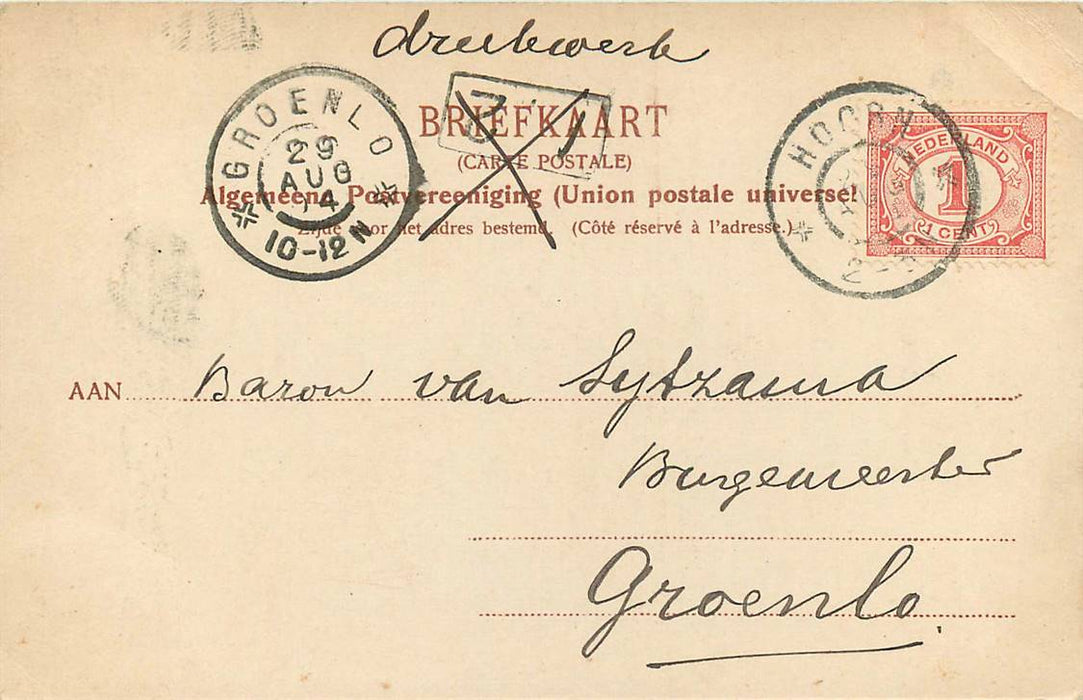 drukwerk
GROENLO
29
AUG
04
10-12 N
BRIEFKAART
(CARTE POSTALE)
Algemeene Postvereeniging (Union postale universel
Zijde voor het adres bestemd. (Côté réservé à l'adresse.)
HOORN
NEDERLAND
1
1 CENT
AAN Baron van Sytzama
Burgemeester
Groenlo